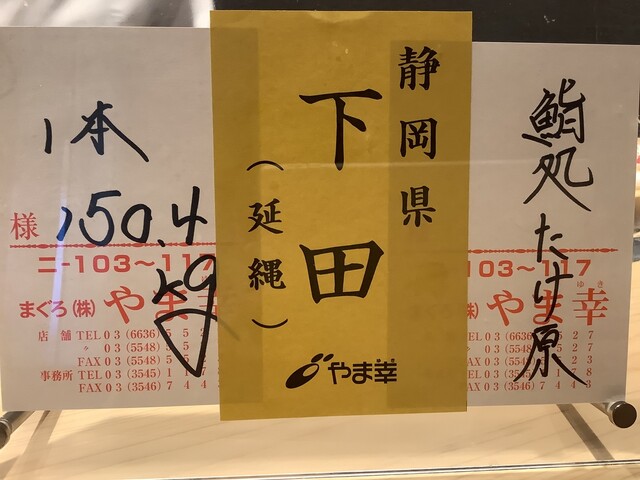 静岡県
下田
（延縄）
やま幸
1本
150.4
kg
様
二-103～117
まぐろ(株)やま幸
店舗 TEL 03 (6636) 5 5 2
〃 03 (5548) 5 5
FAX 03 (5548) 5 5
事務所 TEL 03 (3545) 1 1
FAX 03 (3546) 7 4
鮨処たけ原
103～117
株)やま幸
ゆき
5 2 7
FAX 03
TEL 03 (3545)
FAX 03 (3546) 7 4 4 3